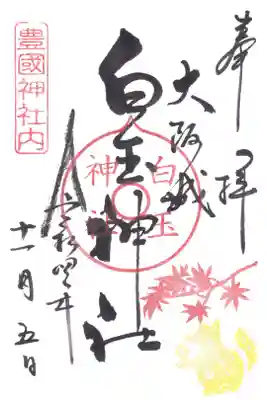 奉拝
大阪城
白玉神社
白玉
神社
豊國神社内
令和四年
十一月五日